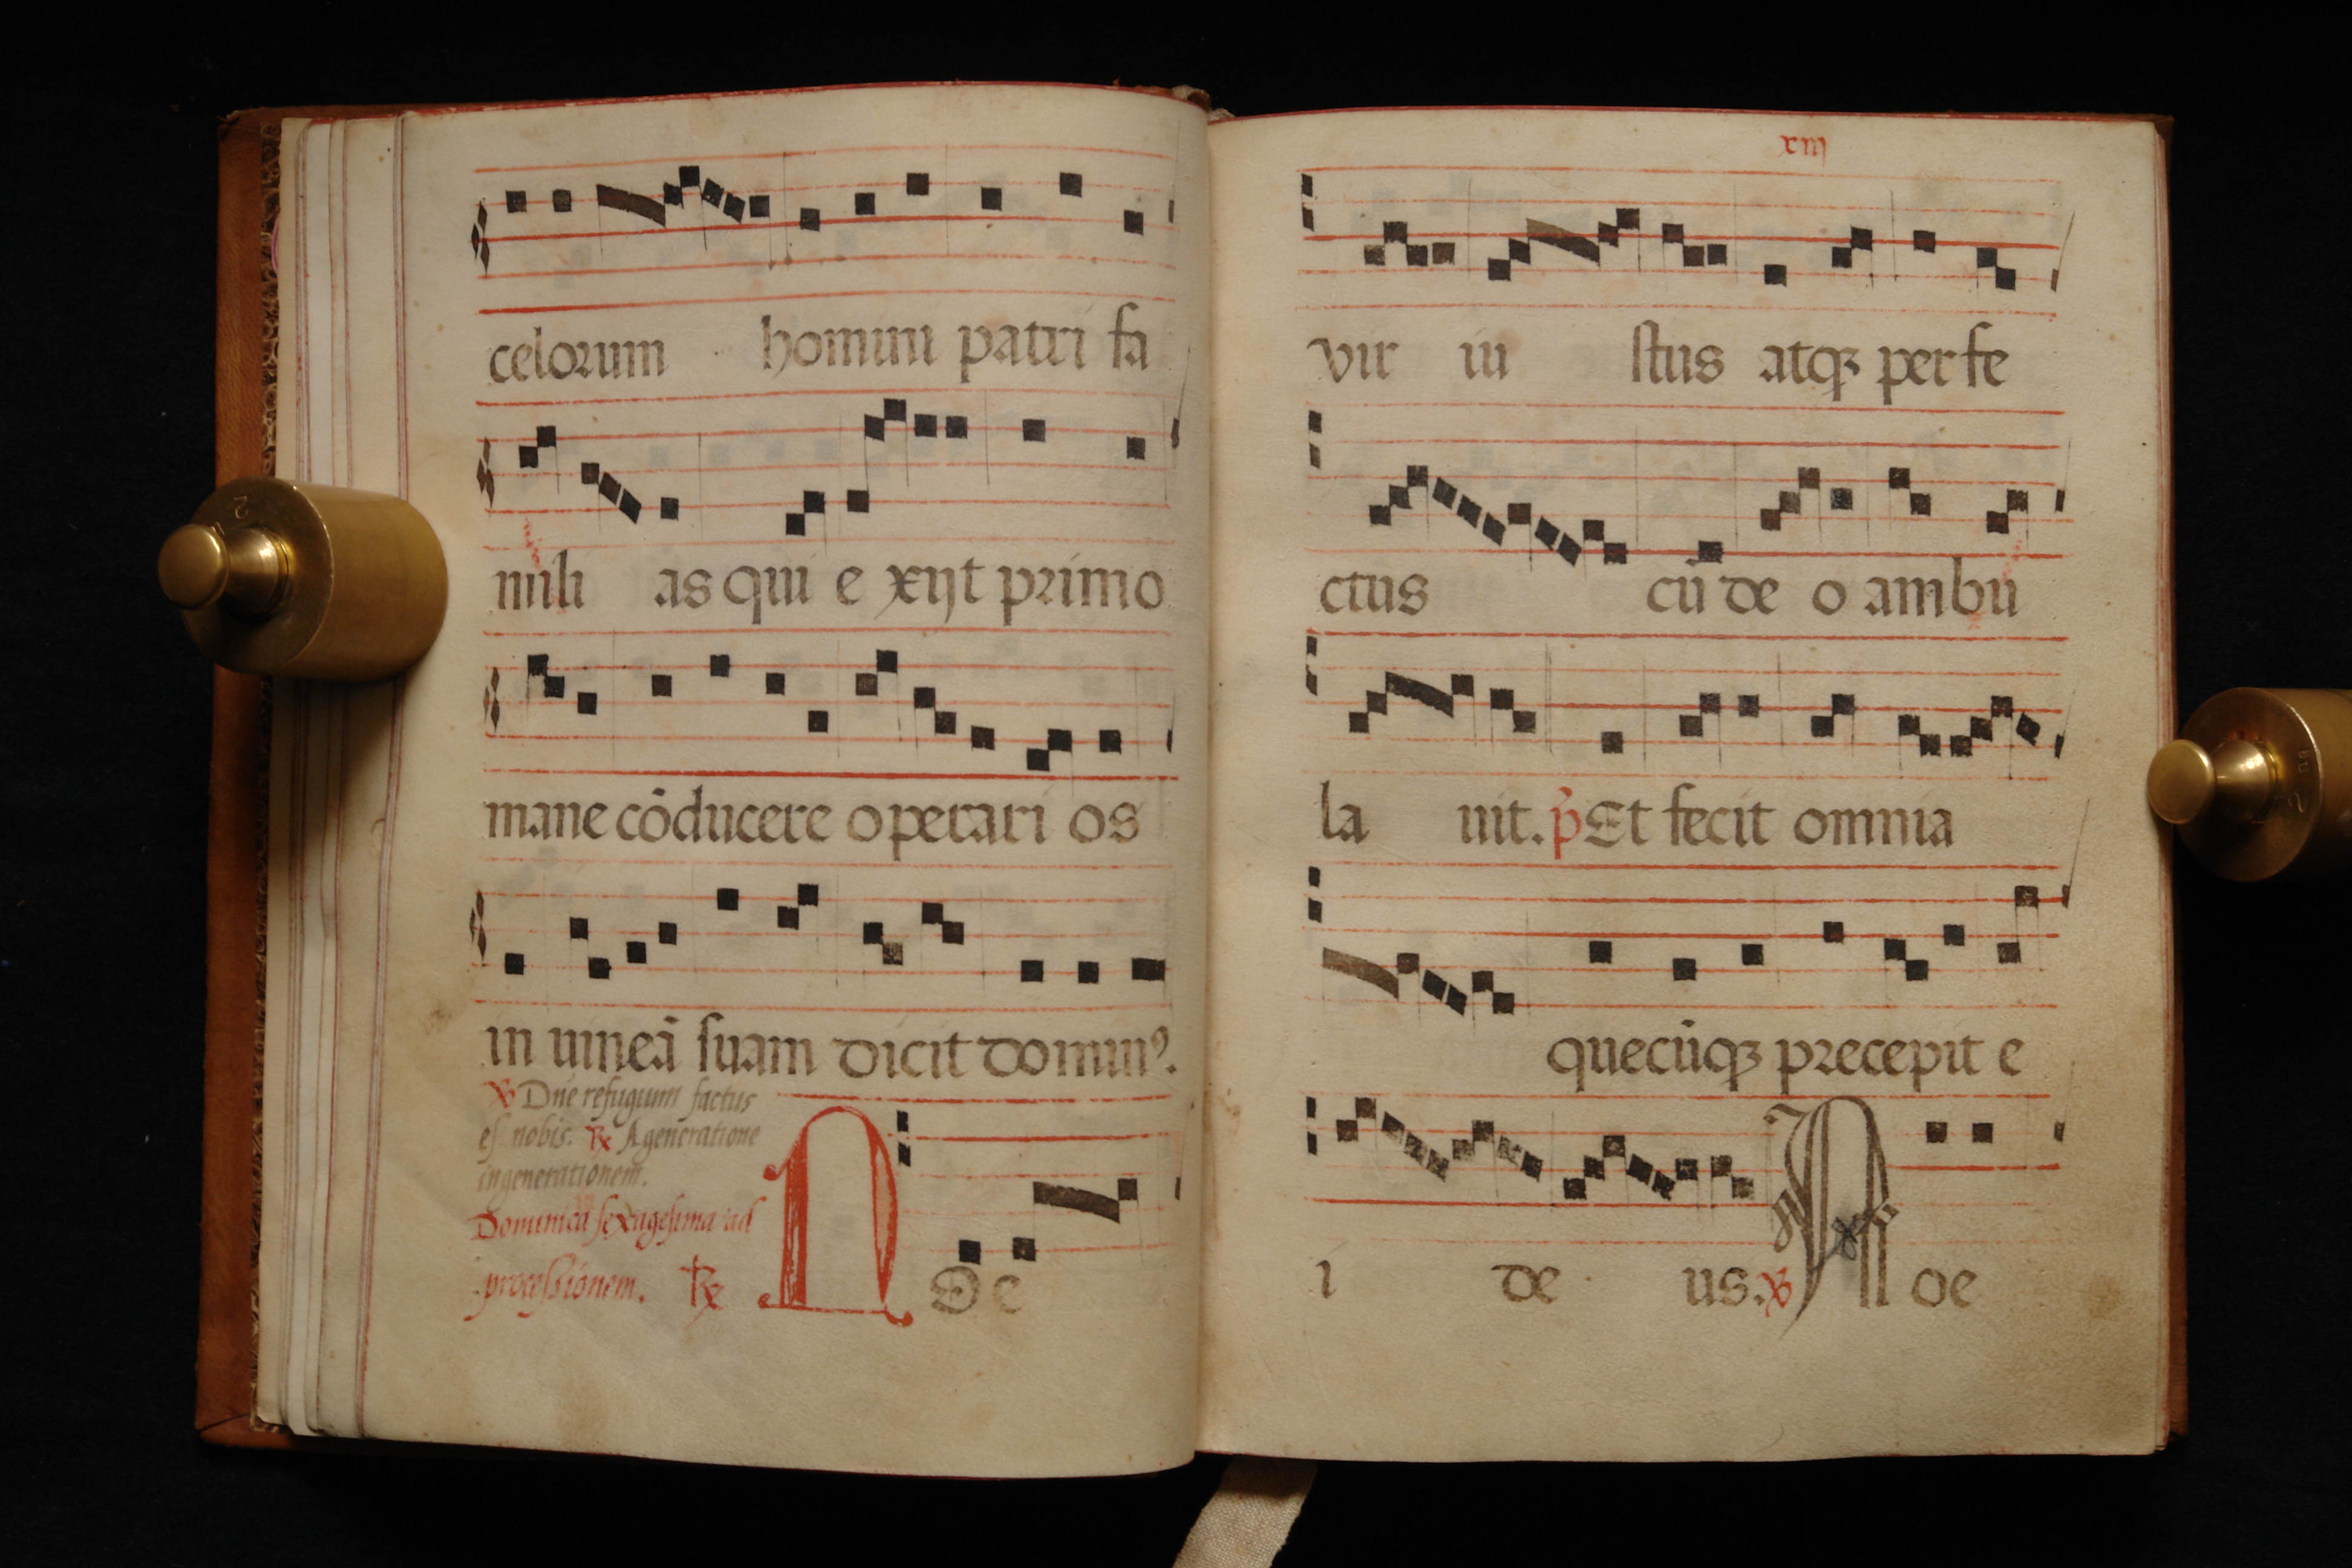 celorum homini patri fa
mili as qui e xijt primo
mane cōducere operari os
in uineā suam dicit domin⁹.
℣ Dñe refugium factus
es nobis. ℟ A generatione
in generationem.
Dominica sexagesima ad
processionem. ℟ N Oe
xiij
vir iu stus atqꝫ perfe
ctus cū de o ambu
la uit. p̄ Et fecit omnia
quecūqꝫ precepit e
i de us. ℣ N oe